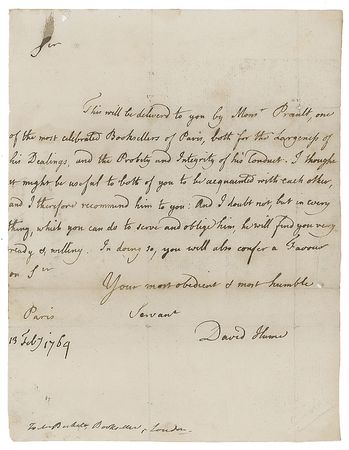 Sir
This will be deliverd to you by Monsr Prault, one
of the most celebrated Booksellers of Paris, both for the Largeness of
his Dealings, and the Probity and Integrity of his Conduct. I thought
it might be useful to both of you to be acquainted with each other,
and I therefore recommend him to you: And I doubt not, but in every
thing, which you can do to serve and oblige him, he will find you very
ready & willing. In doing so, you will also confer a Favour
on Sir
Your most obedient & most humble
Paris Servant
13 Feby 1764 David Hume
To Mr Beckett, Bookseller, London